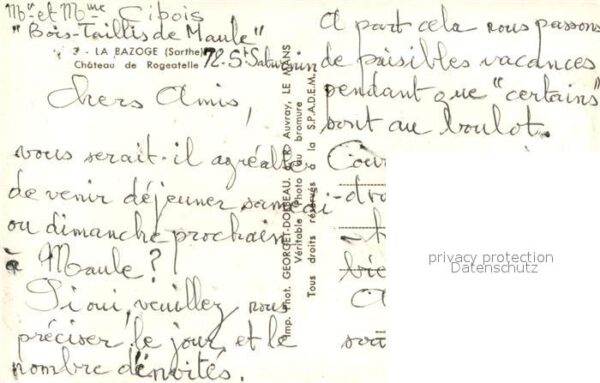 Mr et Mme Cibois
"Bois-Taillis de Maule"
2 - LA BAZOGE (Sarthe) 72-St Saturnin
Château de Rogeatelle
Chers Amis,
vous serait-il agréable
de venir déjeuner samedi
ou dimanche prochain
à Maule?
Si oui, veuillez nous
préciser le jour et le
nombre d'invités.
Imp. Phot. GEORGET-DOLBEAU, Auvray, LE MANS
Véritable Photo au bromure
Tous droits réservés à la S.P.A.D.E.M.
A part cela nous passons
de paisibles vacances
pendant que "certains"
sont au boulot.
privacy protection
Datenschutz